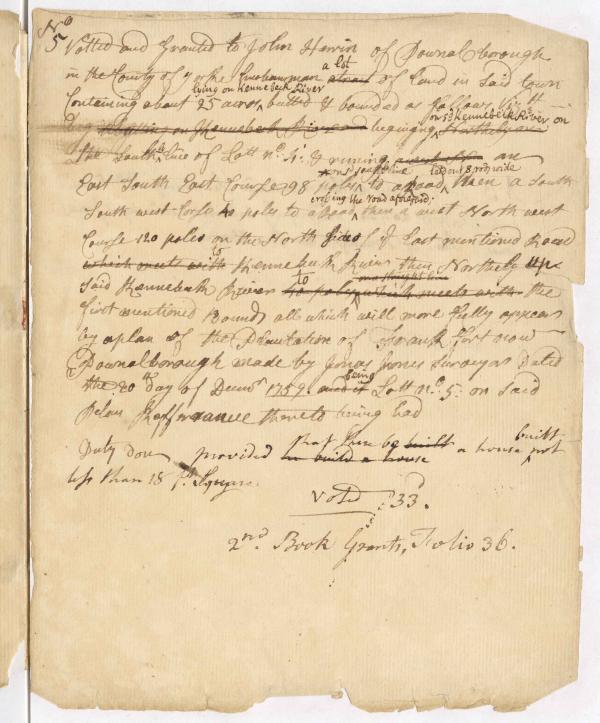 No
5 Votted and Granted to John Herrin of Pownalborough
in the County of yorke husbanman a Lot of Land in said town
lying on Kennebeck River
Containing about 25 acres butted & bounded as follows
on sd Kennebeck River on
begining
the South line of Lott no. 4. & runing an
South line 8 rods wide
East South East Course 98 poles to a Road then a South
crosing the road aforesaid
South west Corse 40 poles to a Road then a west North west
Course 120 poles on the North side of ye Last mentioned Road
which meets with to Kennebeck River then Northerly up
said Kennebeck River to the
first mentioned Bounds all which will more fully appear
by a plan of the Plantation of Frankfort now
Pownalborough made by Jonas Jones Surveyor Dated
the 20th Day of Decemr 1759. being Lott no. 5: on said
Plan Refferance thereto being had
Duty Don provided that there be built a house built not
in build a house
less than 18 ft Square.
Voted 33.
2nd. Book Grants, Folio 36.